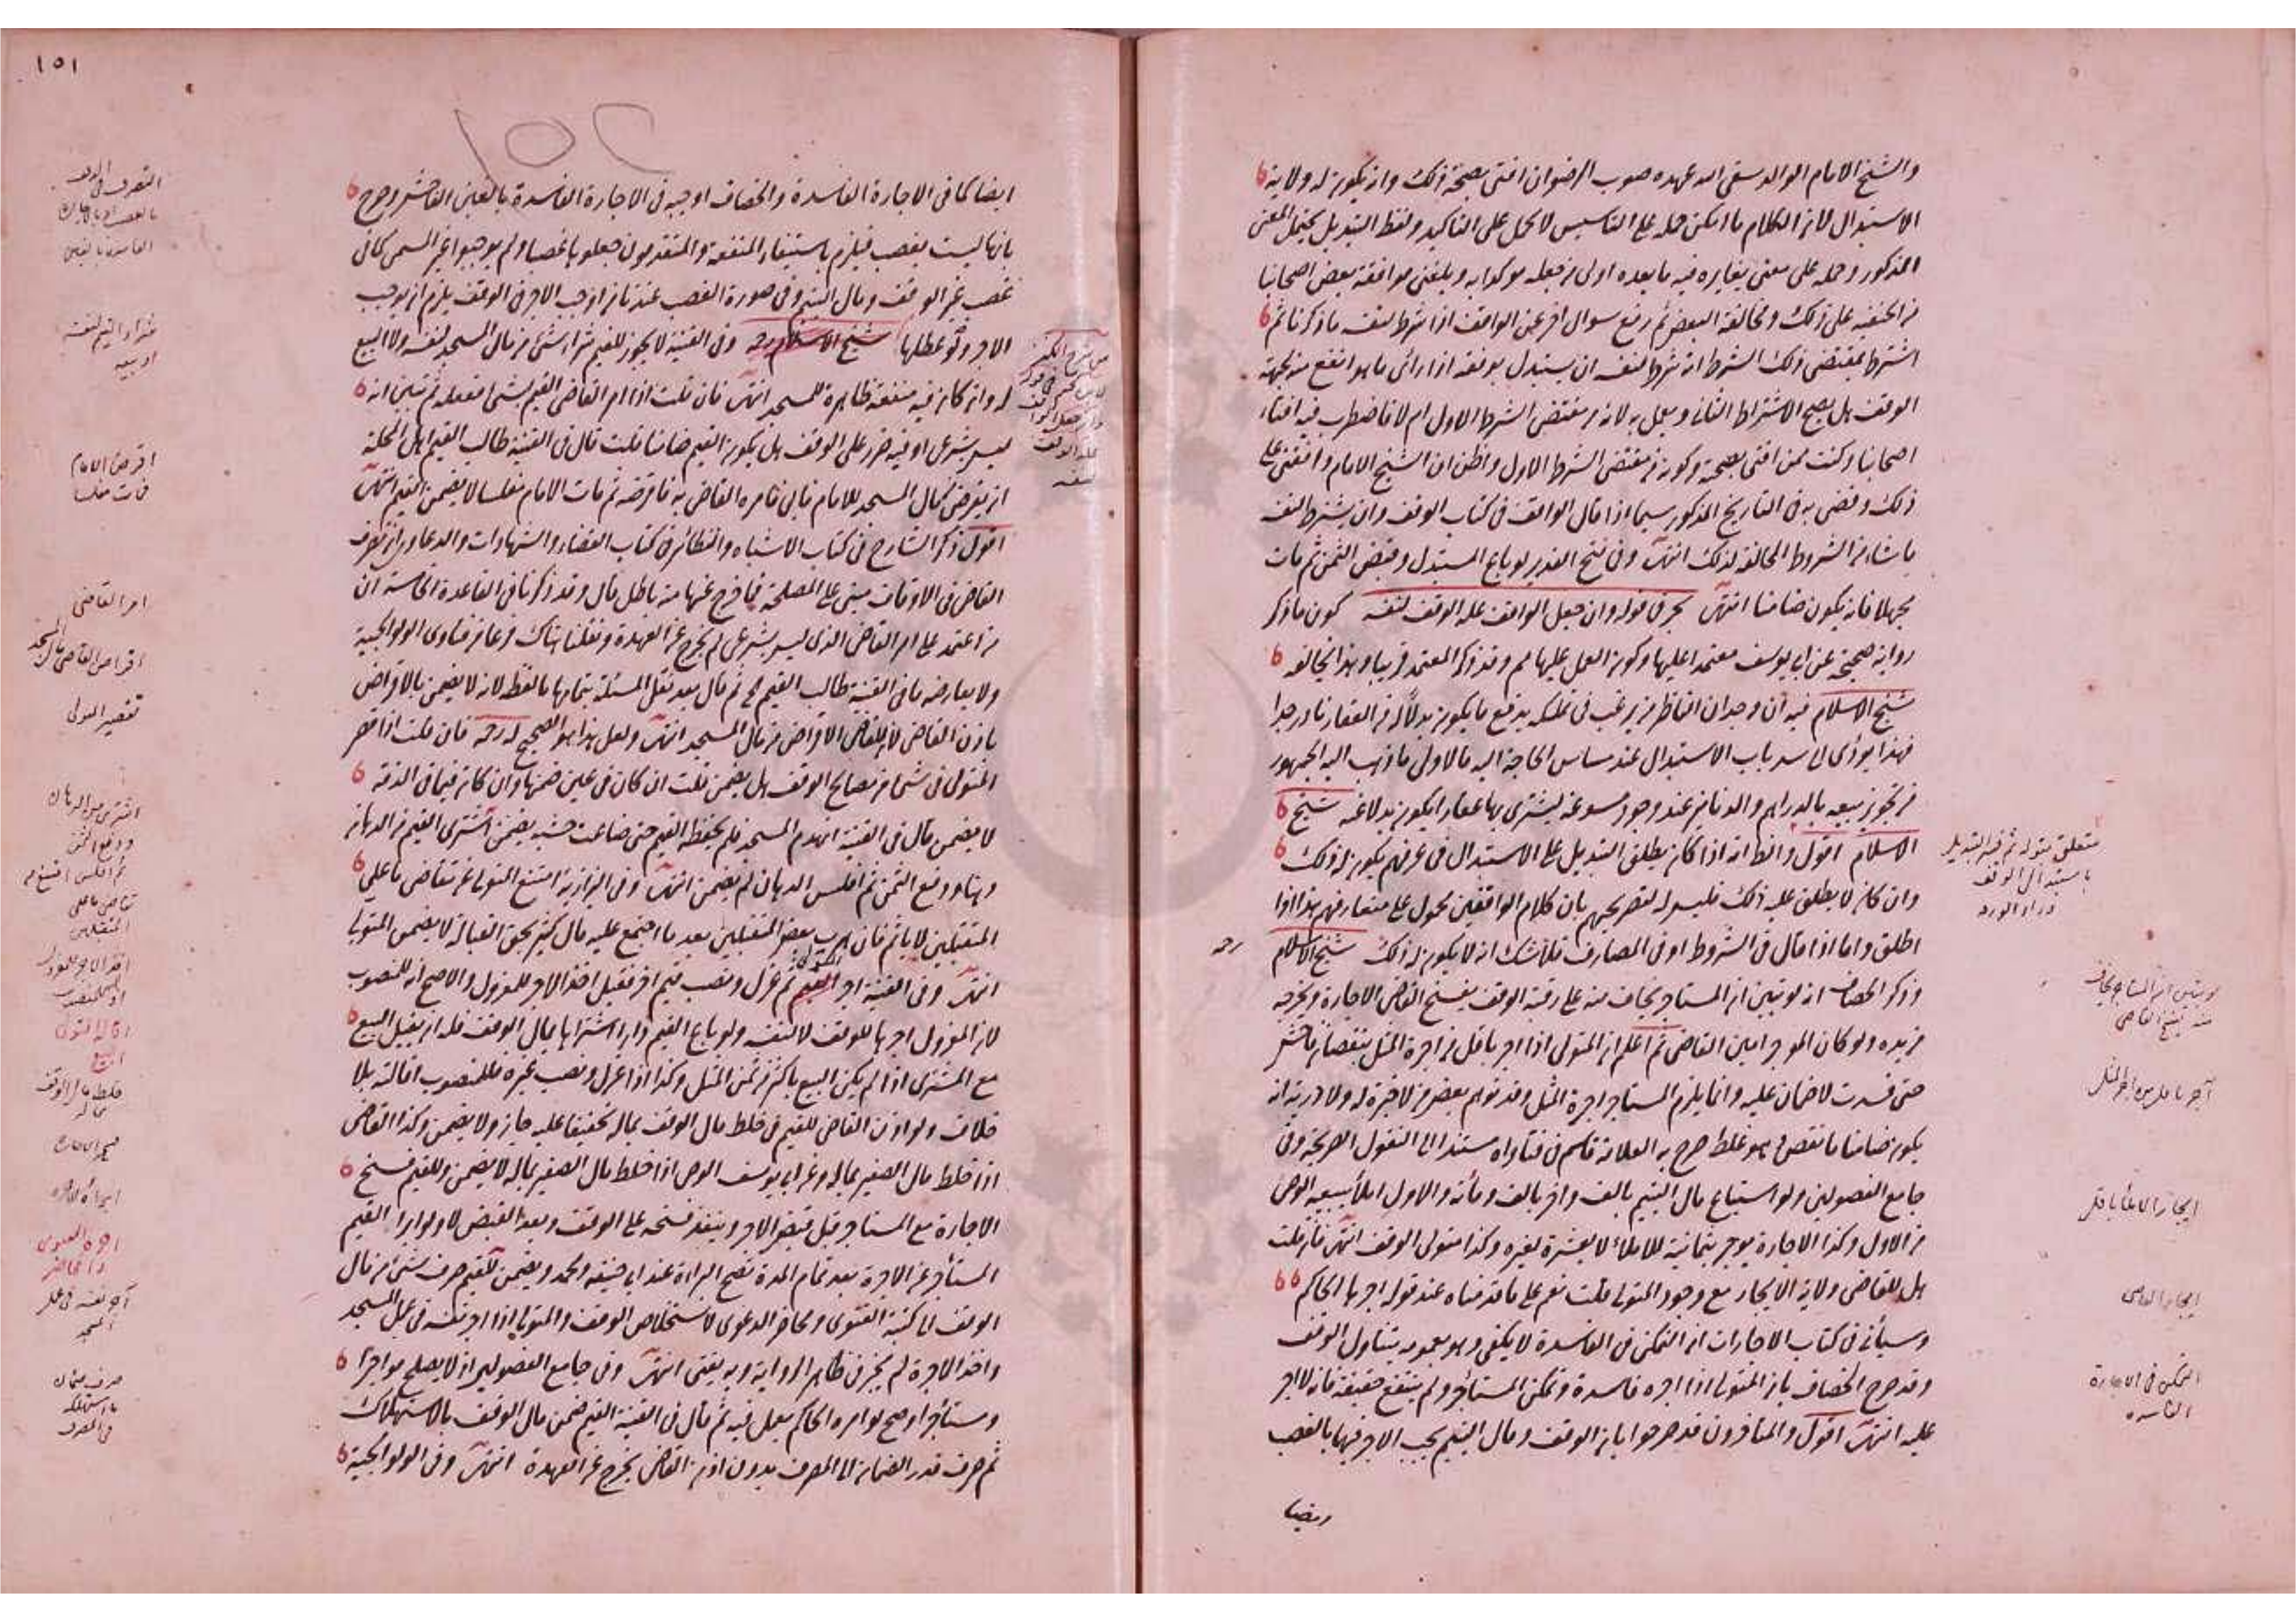 والشيخ الامام الوالد سقى الله عهده صوب الرضوان افتى بصحة ذلك وان يكون له ولاية
الاستبدال لان الكلام ما امكن حمله على التاسيس لا يحمل على التاكيد ولفظ التبديل يحتمل المعنى
المذكور وحمله على معنى يغايره فيه ما بعده اولى من جعله موكدا به وبلغنى موافقة بعض اصحابنا
من الحنفية على ذلك ومخالفة البعض ثم رفع سوال اخر عن الواقف اذا شرط لنفسه ما ذكرنا ثم
اشترط بمقتضى ذلك الشرط انه شرط لنفسه ان يستبدل بوقفه اذا راى ما هو انفع منه لجهة
الوقف هل يصح الاشتراط الثانى ويعمل به لانه من مقتضى الشرط الاول ام لا فاضطرب فيه افتاء
اصحابنا وكنت ممن افتى بصحته وكونه من مقتضى الشرط الاول واظن ان الشيخ الامام وافقنى على
ذلك وقضى به فى التاريخ المذكور سيما اذا قال الواقف فى كتاب الوقف وان يشترط لنفسه
ما شاء من الشروط المخالفة لذلك انتهى وفى فتح القدير لو باع المستبدل وقبض الثمن ثم مات
مجهلا فانه يكون ضامنا انتهى بحر فى قوله وان جعل الواقف غلة الوقف لنفسه كون ما ذكر
رواية صحيحة عن ابى يوسف معتمدا عليها وكون العمل عليها مم وقد ذكر المعتمد قريبا وهذا يخالفه
شيخ الاسلام فيه ان وجدان الناظر من يرغب فى تملكه بدفع ما يكون بدلا له من العقار نادر جدا
فهذا يودى الى سد باب الاستبدال عند مساس الحاجة اليه فالاولى ما ذهب اليه الجمهور
من تجويز بيعه بالدراهم والدنانير عند وجود مسوغه ليشترى بها عقارا يكون بدلا عنه شيخ
الاسلام اقول والظ انه اذا كان يطلق التبديل على الاستبدال فى عرفهم يكون له ذلك
وان كان لا يطلق عليه ذلك فليس له لتصريحهم بان كلام الواقفين محمول على متعارفهم هذا اذا
اطلق واما اذا قال فى الشروط او فى المصارف فلا شك انه لا يكون له ذلك شيخ الاسلام رحه
وذكر الخصاف انه لو تبين ان المستاجر يخاف منه على رقبة الوقف يفسخ القاضى الاجارة ويخرجه
من يده ولو كان الموجر امين القاضى ثم اعلم ان المتولى اذا اجر باقل من اجرة المثل بنقصان فاحش
حتى فسدت لا ضمان عليه وانما يلزم المستاجر اجرة المثل وقد توهم بعض من لا خبرة له ولا دربة انه
يكون ضامنا ما نقص وهو غلط صرح به العلامة قاسم فى فتاواه مستندا الى النقول الصريحة وفى
جامع الفصولين ولو استباع مال اليتيم بالف واخر بالف ومأته والاول املأ يبيعه الوصى
من الاول وكذا الاجارة يوجر بثمانية للاملاء لا بعشرة لغيره وكذا متولى الوقف انتهى فان قلت
هل للقاضى ولاية الايجار مع وجود المتولى قلت نعم على ما قدمناه عند قوله اجرها الحاكم
وسيأتى فى كتاب الاجارات ان التمكن فى الفاسدة لا يكفى وهو بعمومه يتناول الوقف
وقد صرح الخصاف بان المتولى اذا اجره فاسدة وتمكن المستأجر ولم ينتفع حقيقة فانه لا اجر
عليه انتهى اقول والمتاخرون قد صرحوا بان الوقف ومال اليتيم يجب الاجر فيها بالغصب
ايضا
متعلق بقوله ثم فيه التبديل
باستبدال الوقف
لو تبين ان المستاجر يخاف
منه يفسخ القاضى
آجر باقل من اجر المثل
ايجار الاملأ باقل
ايجار القاضى
التمكن فى الاجارة
الفاسدة
١٥١
ايضا كما فى الاجارة الفاسدة والخصاف اوجبه فى الاجارة الفاسدة بالغبن الفاحش وصرح
بانها ليست بغصب فيلزم باستيفاء المنفعة والمتقدمون جعلوها غصبا ولم يوجبوا غير المسمى كما فى
غصب غير الوقف ومال اليتيم وفى صورة الغصب عندنا من اوجب الاجر فى الوقف يلزم ان يوجب
الاجر ولو عطلها شيخ الاسلام رحه وفى القنية لا يجوز للقيم شراء شئ من مال المسجد لنفسه ولا البيع
له وان كان فيه منفعة ظاهرة للمسجد انتهى فان قلت اذا امر القاضى القيم بشئ ففعله ثم تبين انه
ليس بشرعى او فيه ضرر على الوقف هل يكون القيم ضامنا قلت قال فى القنية طالب القيم اهل المحلة
ان يقرض من مال المسجد للامام فابى فامره القاضى به فاقرضه ثم مات الامام مفلسا لا يضمن القيم انتهى
اقول ذكر الشارح فى كتاب الاشباه والنظائر فى كتاب القضاء والشهادات والدعاوى ان تصرف
القاضى فى الاوقاف مبنى على المصلحة فما خرج عنها منه باطل قال وقد ذكرنا فى القاعدة الخامسة ان
من اعتمد على امر القاضى الذى ليس بشرعى لم يخرج عن العهدة ونقلنا هناك فرعا من فتاوى الولوالجية
ولا يعارضه ما فى القنية طالب القيم الخ ثم قال بعد نقل المسئلة بتمامها ما لفظه لانه لا يضمن بالاقراض
باذن القاضى لان للقاضى الاقراض من مال المسجد انتهى ولعل هذا هو الصحيح له رحه فان قلت اذا قصر
المتولى فى شئ من مصالح الوقف هل يضمن قلت ان كان فى عين ضمنها وان كان فيما فى الذمة
لا يضمن قال فى القنية انهدم المسجد فلم يحفظه القيم حتى ضاعت خشبه يضمن اشترى القيم من الدهان
دهنا ودفع الثمن ثم افلس الدهان لم يضمن انتهى وفى البزازية امتنع المتولى عن تقاضى ما على
المتقبلين لا ياثم فان هرب بعض المتقبلين بعد ما اجتمع عليه مال كثير بحق القبالة لا يضمن المتولى
انتهى وفى القنية اجر القيم ثم عزل ونصب قيم اخر فقيل اخذ الاجر للمعزول والاصح انه للمنصوب
لان المعزول اجرها للوقف لا لنفسه ولو باع القيم دارا اشتراها بمال الوقف فله ان يقيل البيع
مع المشترى اذا لم يكن البيع باكثر من ثمن المثل وكذا اذا عزل ونصب غيره فللمنصوب اقالته بلا
خلاف ولو اذن القاضى للقيم فى خلط مال الوقف بماله تخفيفا عليه جاز ولا يضمن وكذا القاضى
اذا خلط مال الصغير بماله وعن ابى يوسف الوصى اذا خلط مال الصغير بماله لا يضمن وللقيم فسخ
الاجارة مع المستاجر قبل قبض الاجر وينفذ فسخه على الوقف وبعد القبض لا ولو ابرا القيم
المستأجر عن الاجرة بعد تمام المدة تصح البراءة عند ابى حنيفه ومحمد ويضمن للقيم صرف شئ من مال
الوقف الى كتبة الفتوى ومحاضر الدعوى لاستخلاص الوقف والمتولى اذا اجر نفسه فى عمل المسجد
واخذ الاجرة لم يجز فى ظاهر الرواية وبه يفتى انتهى وفى جامع الفصولين اذ لا يصلح مواجرا
ومستأجرا وصح لو امره الحاكم بعمل فيه ثم قال فى القنية القيم ضمن مال الوقف بالاستهلاك
ثم صرف قدر الضمان الى المصرف بدون اذن القاضى يخرج عن العهدة انتهى وفى الولوالجية
اقرض الامام
فمات مفلسا
امر القاضى
اقراض القاضى مال المسجد
تقصير المتولى
اشترى من الدهان
ودفع الثمن
خلط مال الوقف
بماله
آجر نفسه فى عمل
المسجد